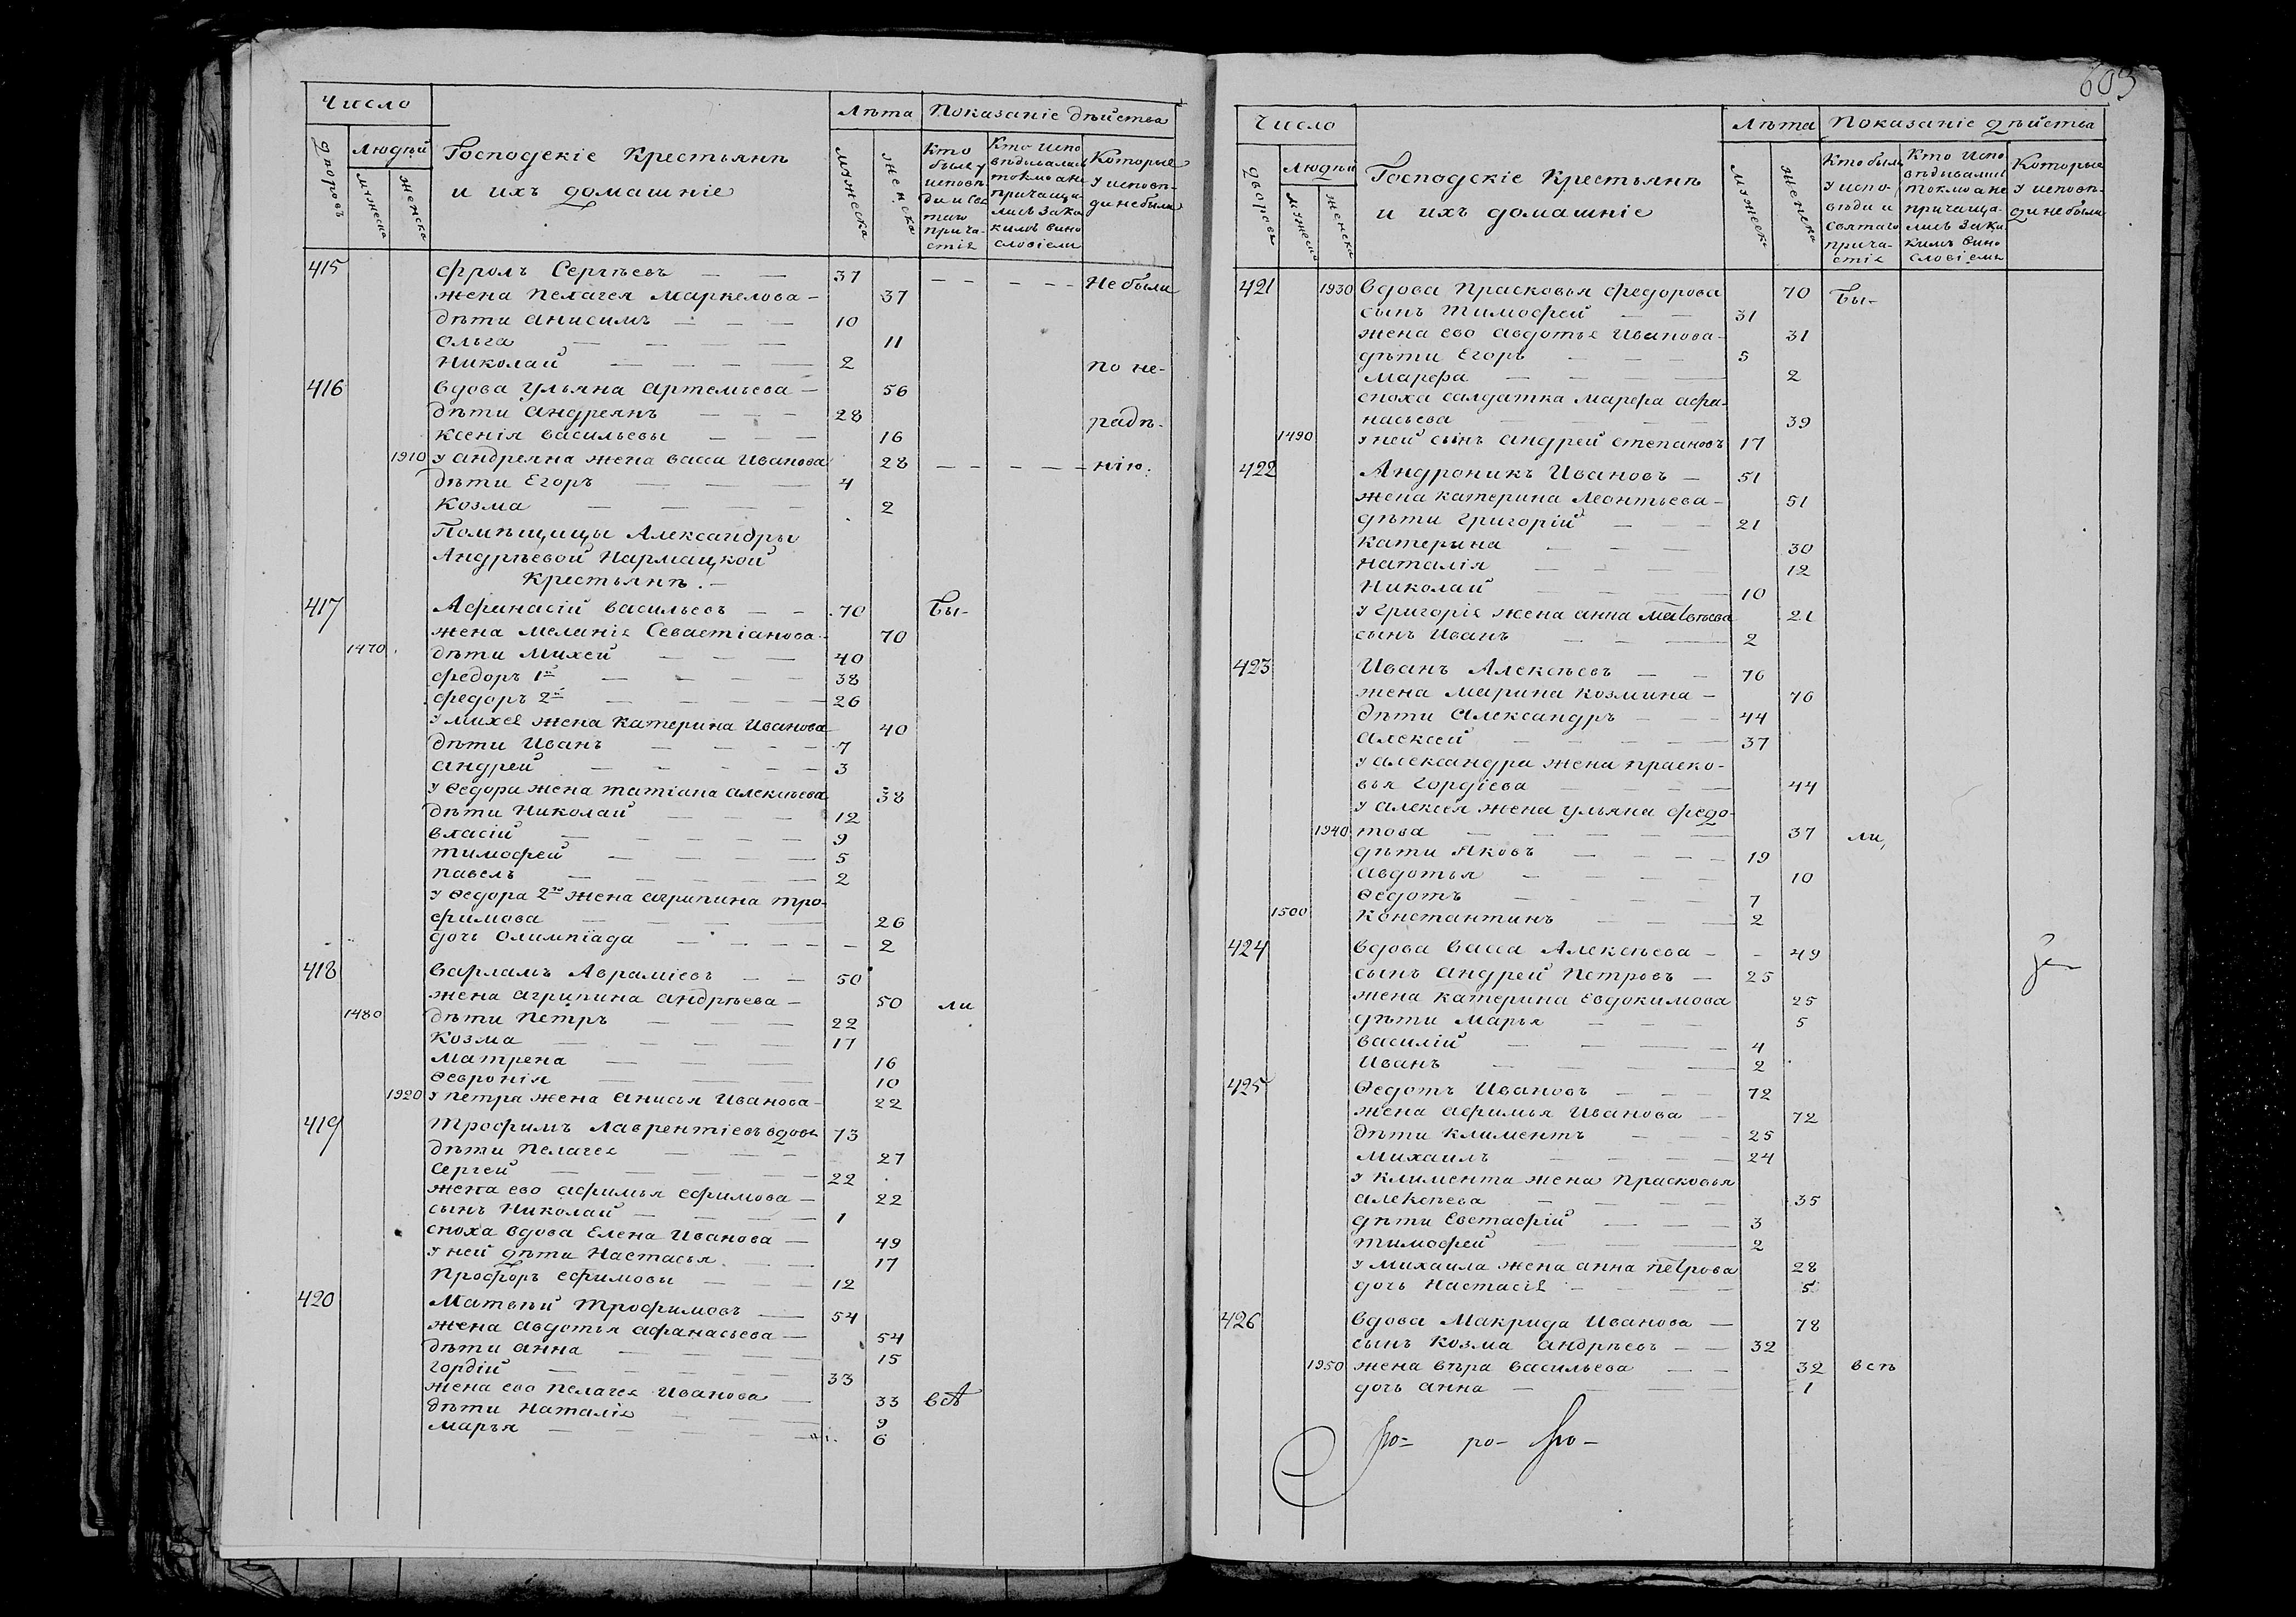 Число
Лѣта
Показаніе дѣйства
дворовъ
Людѣй
мужеска
женска
Господскіе Крестьянѣ
и ихъ домашніе
мужеска
женска
Кто
были у
исповѣ-
ди и свя
таго
прича-
стія
Кто испо
вѣдывались
токмо а не
причаща-
лись за ка
кимъ вино
словіемъ
Которые
у исповѣ-
ди небыли
415 Фролъ Сергѣевъ — — 37 Не были
жена Пелагея Маркелова — 37
дѣти Анисимъ — — — 10
Ольга — — — — 11
Николай — — — — 2 по не-
416 вдова Ульяна Артемьева — 56
дѣти Андреянъ — — — 28 радѣ-
Ксенія Васильевы — — — 16
1910 у Андреяна жена Васса Иванова 28 нію.
дѣти Егоръ — — — 4
Козма — — — — 2
Помѣщицы Александры
Андрѣевой Нармацкой
Крестьянѣ. —
417 Афинасій Васильевъ — — 70 Бы-
жена Меланія Севастіанова — 70
1470 дѣти Михей — — — 40
Федоръ 1й — — — — 38
Федоръ 2й — — — — 26
у Михея жена Катерина Иванова 40
дѣти Иванъ — — — — 7
Андрей — — — — 3
у Ѳедора жена Татіана Алексѣева 38
дѣти Николай — — — 12
Власій — — — — — 9
Тимофей — — — — 5
Павелъ — — — — — 2
у Ѳедора 2го жена Агрипина Тро-
фимова — — — — 26
дочь Олимпіада — — — — 2
418 Варламъ Авраміевъ — — 50
жена Агрипина Андрѣева — 50 ли
1480 дѣти Петръ — — — 22
Козма — — — — 17
Матрена — — — 16
Ѳевронія — — — 10
1920 у Петра жена Анисья Иванова — 22
419 Трофимъ Лаврентіевъ вдовъ 73
дѣти Пелагея — — — 27
Сергей — — — — 22
жена ево Афимья Ефимова — 22
сынъ Николай — — — — 1
сноха вдова Елена Иванова — 49
у ней дѣти Настасья — — 17
Профоръ Ефимовы — — — 12
420 Матвѣй Трофимовъ — 54
жена Авдотья Афанасьева — 54
дѣти Анна — — — 15
Гордій — — — — 33
жена ево Пелагея Иванова — 33 всѣ
дѣти Наталія — — — 9
Марья — — — — 6
603
Число
Лѣта
Показаніе дѣйства
дворовъ
Людѣй
мужеска
женска
Господскіе Крестьянѣ
и ихъ домашніе
мужеск
женска
Кто были
у испо-
вѣди и
святаго
прича-
стія
Кто испо
вѣдывались
токмо а не
причаща-
лись за ка
кимъ вино
словіемъ
Которые
у исповѣ-
ди не были
421 1930 вдова Прасковья Федорова 70 Бы-
сынъ Тимофей — — 31
жена ево Авдотья Иванова — 31
дѣти Егоръ — — — 5
Марфа — — — — 2
сноха салдатка Марфа Афа-
насьева — — — — 39
1490 у ней сынъ Андрей Степановъ 17
422 Андроникъ Ивановъ — 51
жена Катерина Леонтьева — 51
дѣти Григорій — — — 21
Катерина — — — 30
Наталія — — — — 12
Николай — — — — 10
у Григорія жена Анна Матвѣева 21
сынъ Иванъ — — — 2
423 Иванъ Алексѣевъ — — 76
жена Марина Козмина — 76
дѣти Александръ — — — 44
Алексей — — — — — 37
у Александра жена Праско-
вья Гордіева — — — — 44
у Алексея жена Ульяна Федо-
1940 това — — — — — 37 ли,
дѣти Яковъ — — — — 19
Авдотья — — — — 10
Ѳедотъ — — — — — 7
1500 Константинъ — — — 2
424 вдова Васса Алексѣева — — 49
сынъ Андрей Петровъ — 25
жена Катерина Евдокимова 25
дѣти Марья — — — 5
Василій — — — — 4
Иванъ — — — — 2
425 Ѳедотъ Ивановъ — — — 72
жена Афимья Иванова — — 72
дѣти Климентъ — — — 25
Михаилъ — — — — 24
у Климента жена Прасковья
Алексѣева — — — — 35
дѣти Евстафій — — — 3
Тимофей — — — 2
у Михаила жена Анна Петрова 28
дочь Настасія — — — — 5
426 вдова Макрида Иванова — 78
сынъ Козма Андрѣевъ — — 32
1950 жена Вѣра Васильева — — 32 всѣ
дочь Анна — — — — 1